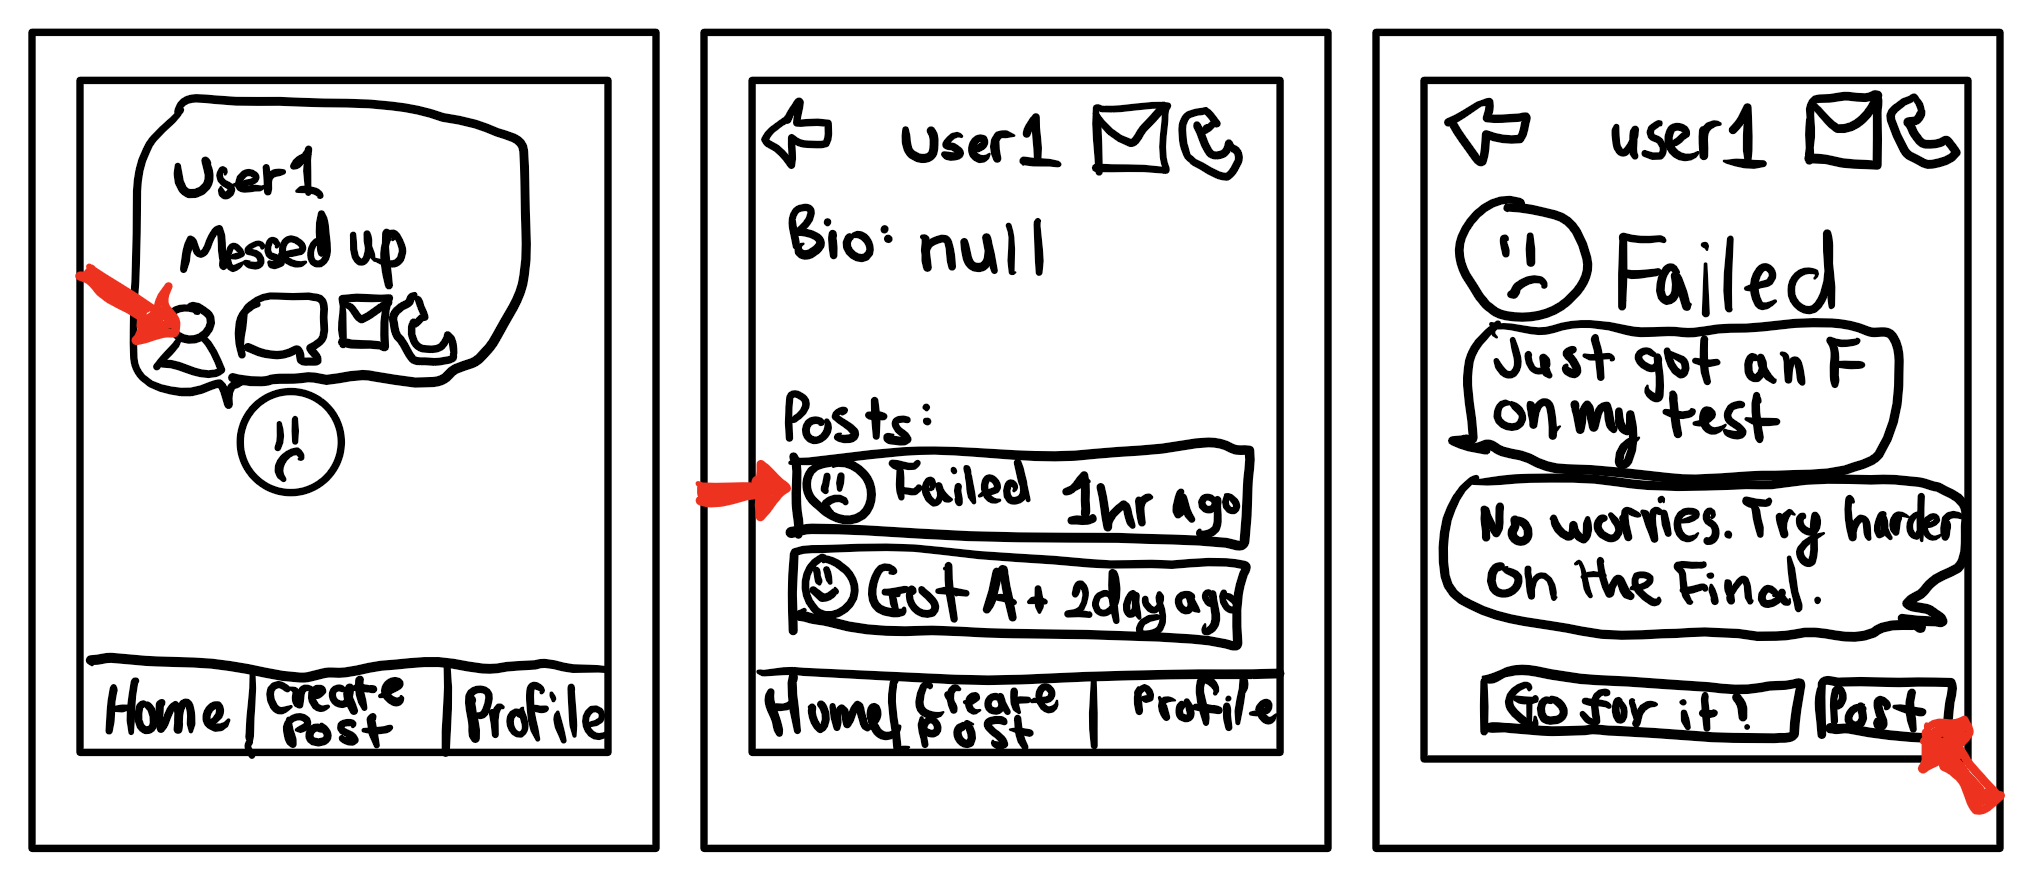 User1
Messed up
Home
Create
Post
Profile
User1
Bio: null
Posts:
Failed 1hr ago
Got A+ 2day ago
Home
Create
Post
Profile
user1
Failed
Just got an F
on my test
No worries. Try harder
on the Final.
Go for it!
Post